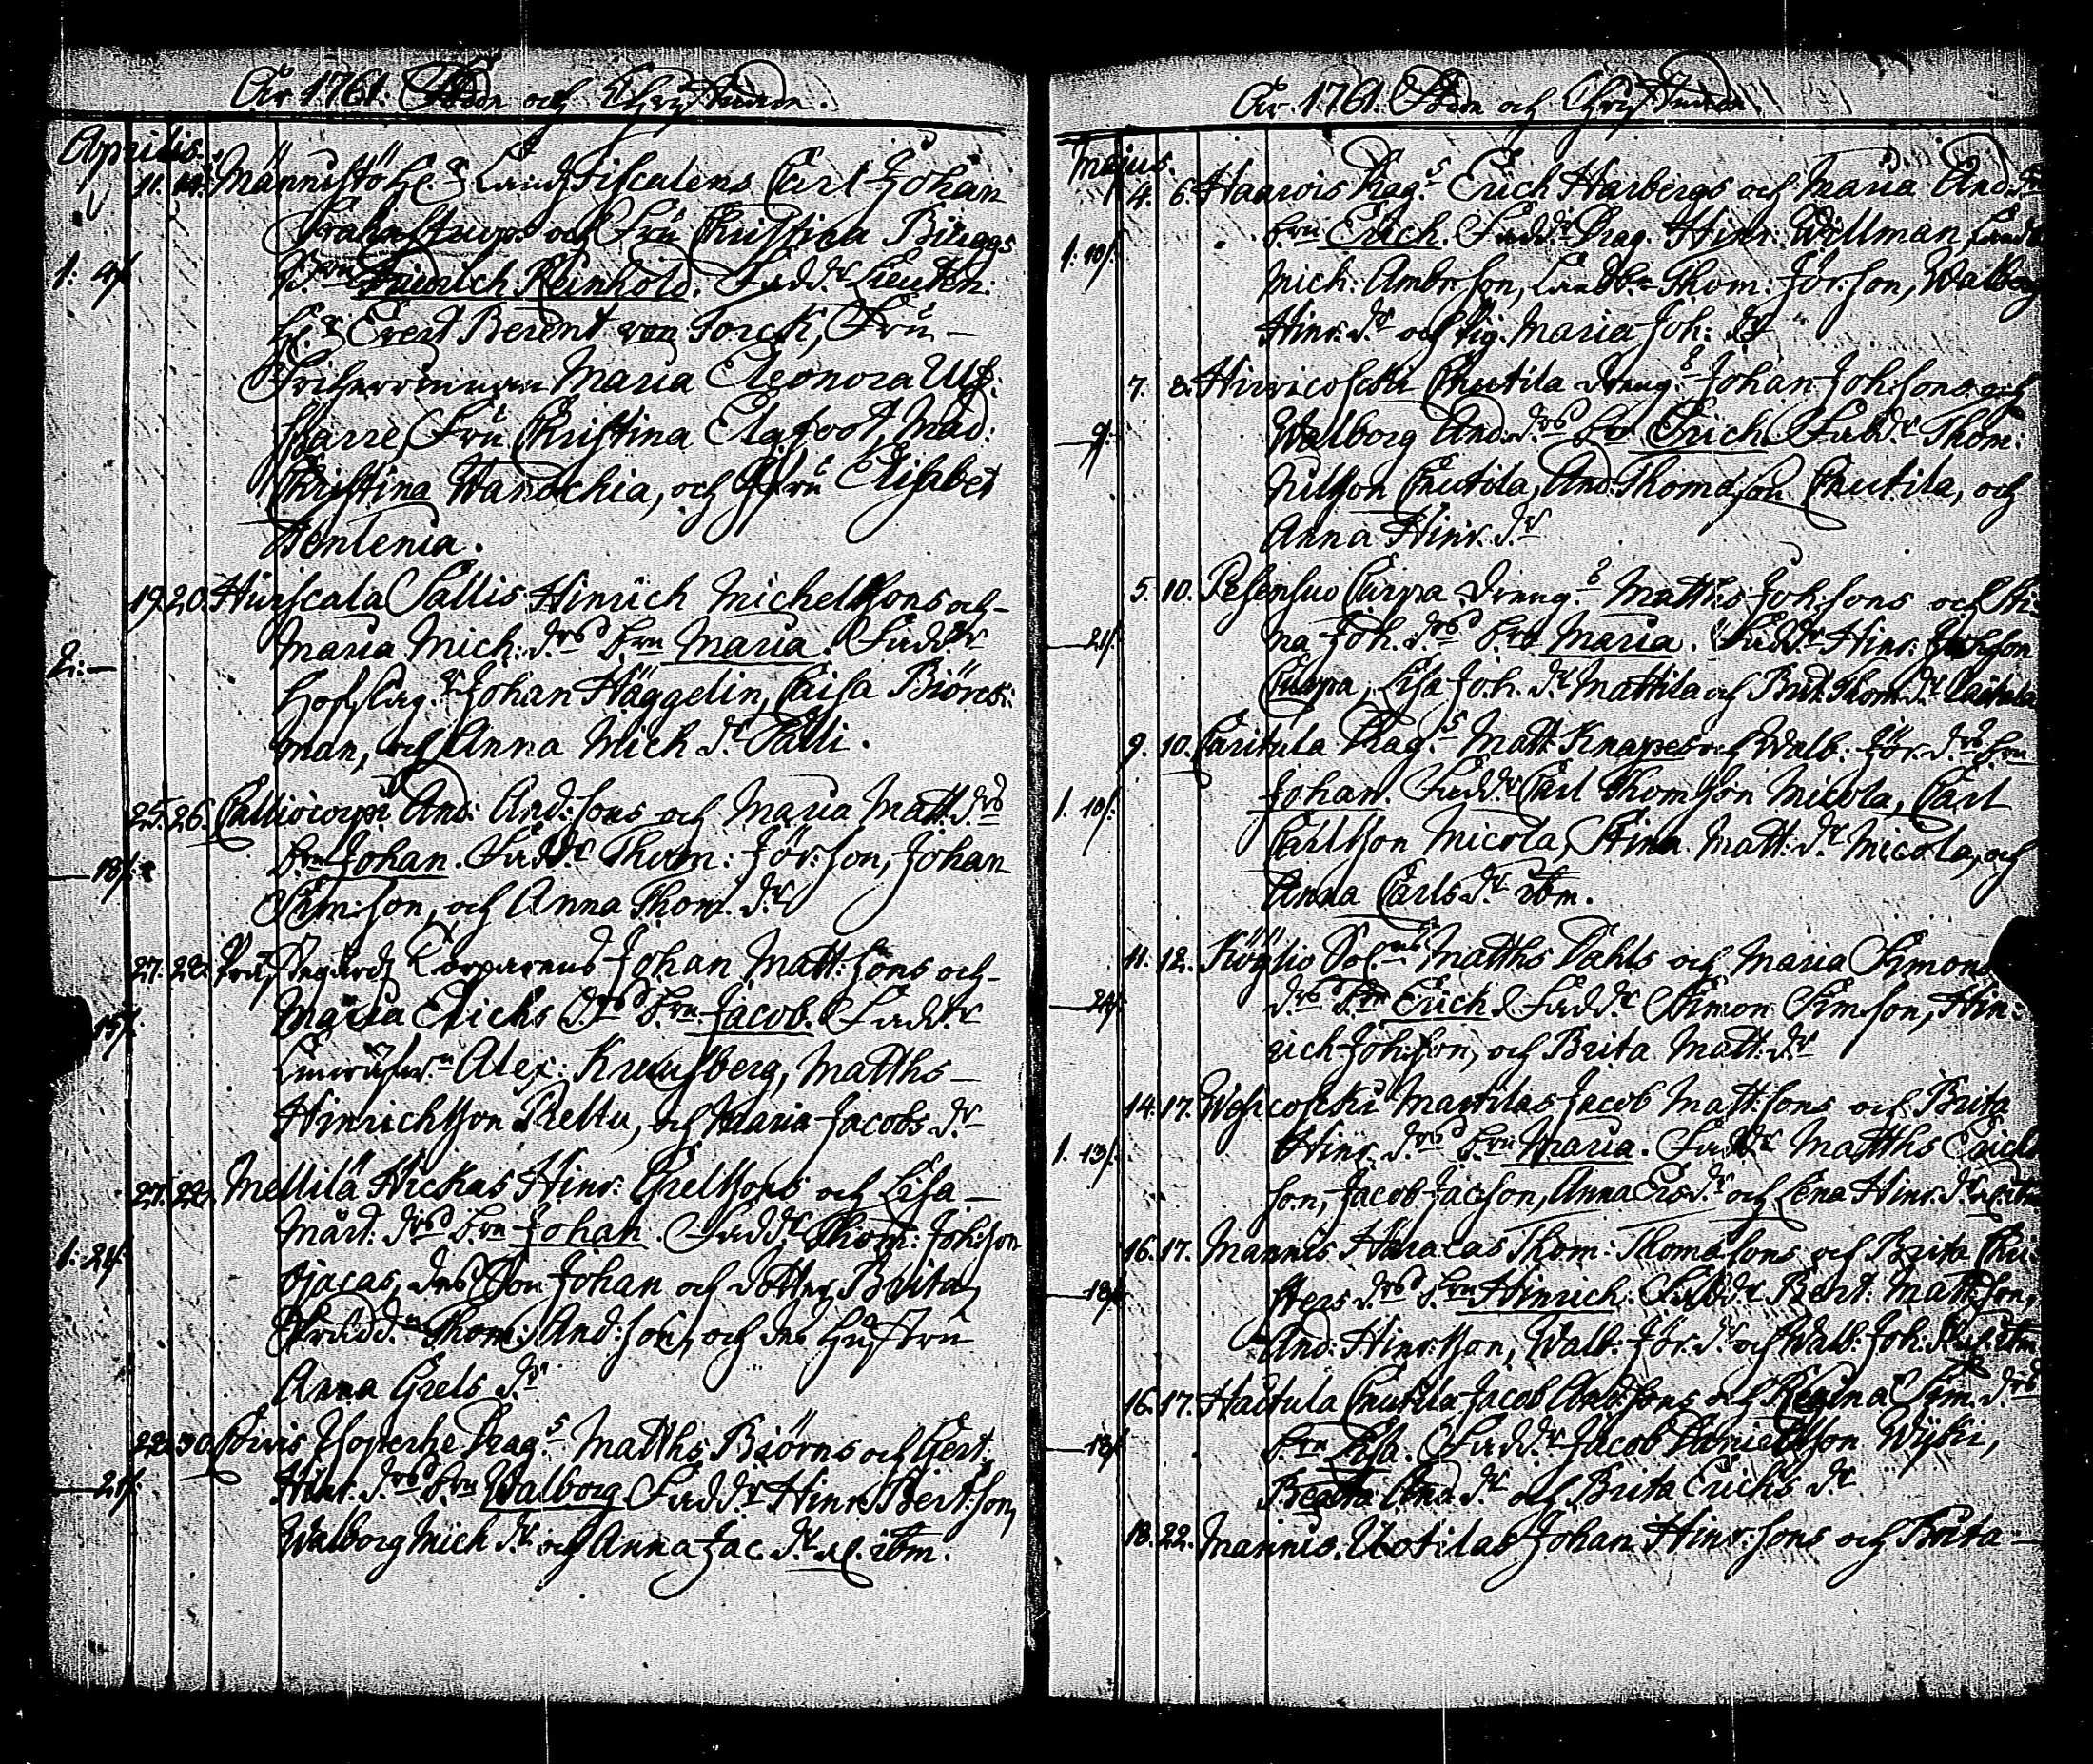 År 1761. Födde och Christnade.
Aprilis.
11. 14. Männistö H:r Landtfiscalens Carl Johan
och Fru Christina Biuggs
1: 4/. B:rn Friedrich Reinhold. Fadd:r Lieuten:
H:r Evert Berent von Torck, Fru
Friherrinnan Maria Eleonora Ulf:
sparre, Fru Christina Elgfoot, Mad:
Christina Wanochia, och Elisabet
Wenlenia.
19. 20. Hurscala Sallis Hinrich Michellsons och
2: — Maria Mich: d:rs b:rn Maria. Fadd:r
Johan Häggelin, Caisa Biörck:
man, och Anna Mich d:r Salli.
25. 26. Calliocorpi And: And:sons och Maria Matt. d:rs
18/. b:rn Johan. Fadd:r Thom: Jör:son, Johan
Sim:son, och Anna Thom. d:r
27. 28. Prästegårds Torparens Johan Matt:sons och
15/. Maria Erichs d:rs b:rn Jacob. Fadd:r
Alex: Kreusberg, Matths
Hinrichsson Peltu, och Maria Jacobs d:r
27. 28. Mellilä Hickas Hinr: Grelssons och Lisa
Mårt: d:rs b:rn Johan. Fadd:r Thom: Joh:son
1: 21/. Ojacas, des Son Johan och dotter Brita,
Thom: And:son, och des Hustru
Anna Grels d:r
28. 30. Isoperhe Drag:s Matths Biörns och Gert:
21/. Hinr. d:rs b:rn Walborg Fadd:r Hinr. Bert:son,
Walborg Mich d:r och Anna Jac. d:r al. ibm.
År 1761. Födde och Christnade.
Majus.
4. 6. Haarois Drag:s Erich Harbergs och Maria And. d:rs
1: 10/. b:rn Erich. Fadd:r Drag. Hinr: Willman,
Mich: Ambr:son, Thom: Jör:son, Walborg
Hinr. d:r och pig. Maria Joh: d:r
7. 8. Hirvicoschi Cnutila dreng:s Johan Joh:sons och
9/. Walborg And. d:rs b:rn Erich. Fadd:r Thom:
Nilsson Cnutila, And: Thomasson Cnutila, och
Anna Hinr. d:r
5. 10. Pesensuo Curpa dreng:s Matths Joh:sons och Sti:
21/. na Joh. d:rs b:rn Maria. Fadd:r Hinr: Joh:son
Curpa, Lisa Joh. d:r Mattila och Brit. Thom. d:r
9. 10. Caritula Drag:s Matt. Knapes och Walb: Jör. d:rs b:rn
1. 10/. Johan. Fadd:r Carl Thomsson Micola, Carl
Carlsson Micola, Stina Matt. d:r Micola, och
Anna Carls d:r ibm.
11. 12. Köyliö Matths Dahls och Maria Simons
24/. d:rs b:rn Erich. Fadd:r Simon Simson, Hin:
rich Joh:son, och Brita Matt. d:r
14. 17. Wescoschi Mattilas Jacob Matt:sons och Brita
1. 13/. Hinr. d:rs b:rn Maria. Fadd:r Matths Erichs
son, Jacob Jacson, Anna Ers d:r och Lena Hinr. d:r al. ibm
16. 17. Mannis Haracas Thom: Thomasons och Brita Chri
18/. sters d:rs b:rn Hinrich. Fadd:r Bert: Matt:son,
And: Hinrsson, Walb: Jör. d:r och Walb: Joh: d:r al. ibm
16. 17. Hactula Cnutila Jacob And:sons och Regina Sim. d:rs
18/. b:rn Lisa. Fadd:r Jacob Danielsson Wyki,
Beata And. d:r och Brita Erichs d:r
18. 22. Mannis Uotilas Johan Hinr:sons och Brita